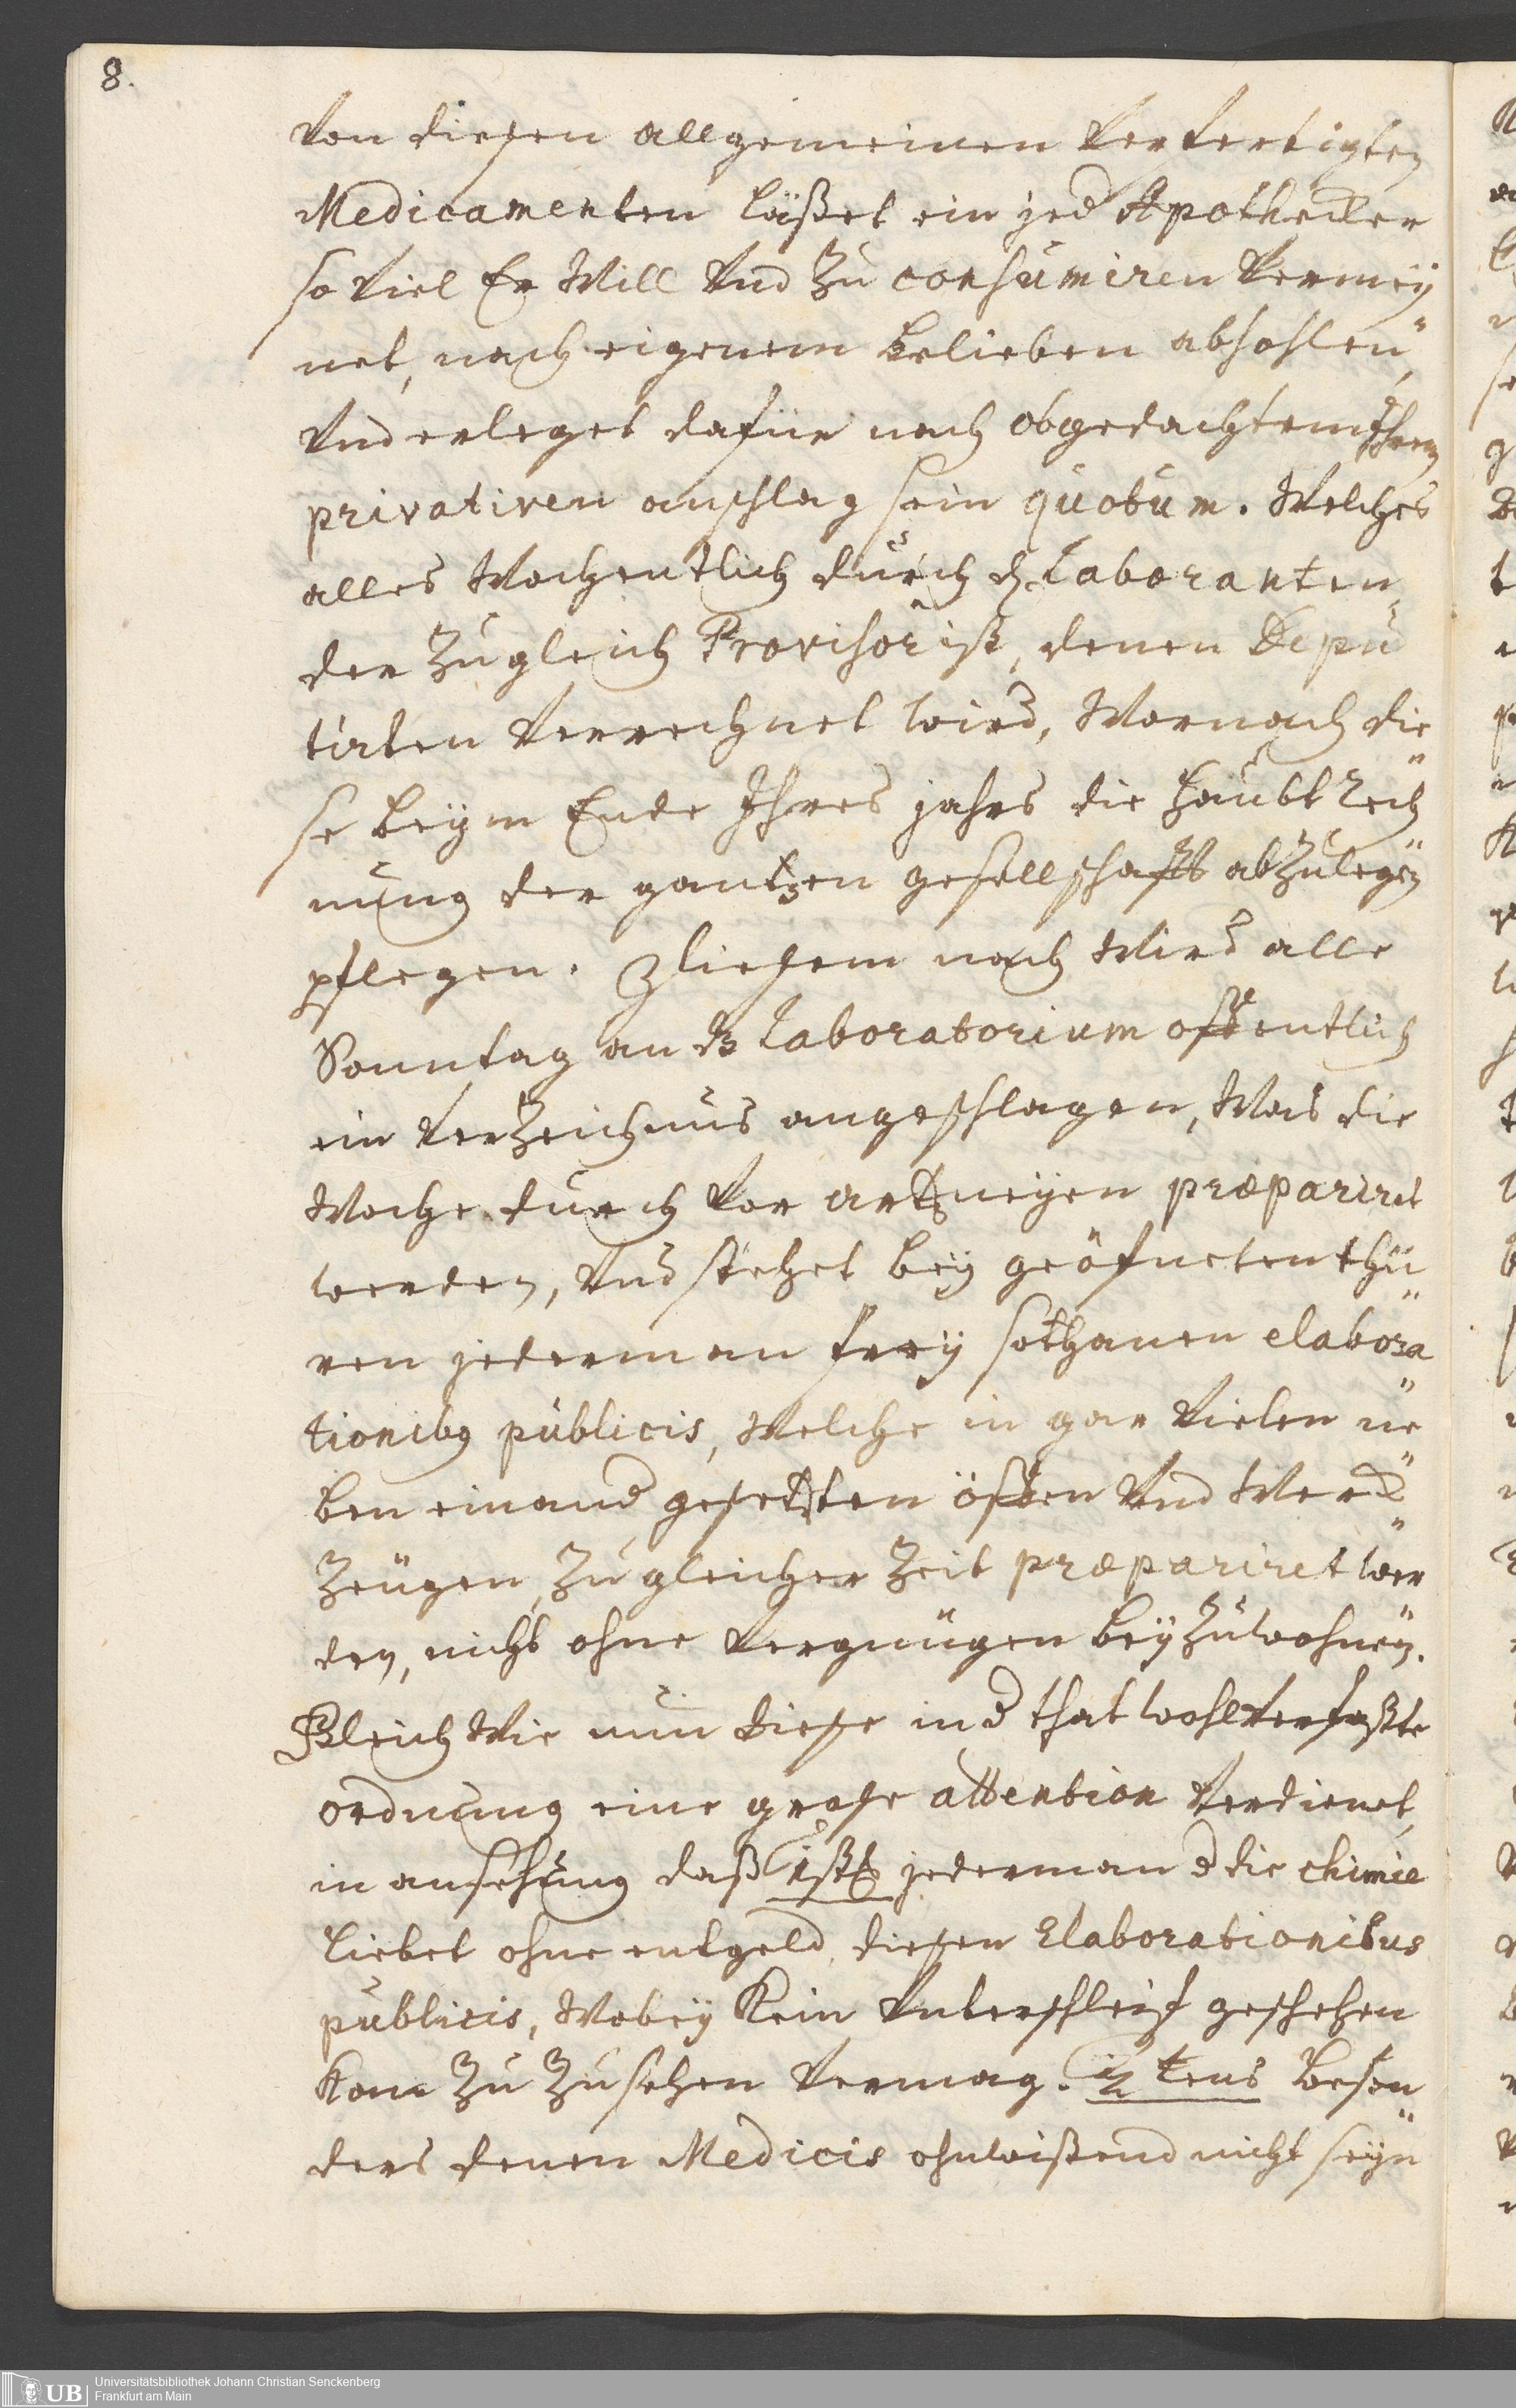 8.
Von diesen allgemeinen Verfertigten
Medicamenten läßet ein jed Apothecker
so viel Er Will Vnd Zu consumiren Vermey
net, nach eigenem belieben abhohlen,
Vnd erleget dafür nach obgedachtem Ihren
privativen anschlag sein quotum. Welches
alles Wochentlich durch d. Laboranten,
der Zugleich Provisor ist, denen Depu
tirten Verrechnet wird, Wornach die
se beym Ende Ihres jahrs die Haubt Rech
nung der gantzen gesellschafft abzulegen
pflegen. Diesem nach Wird alle
Sonntag an dz Laboratorium offentlich
ein Verzeichnus angeschlagen, Was die
Woche durch Vor artzneyen præpariret
werden, Vnd stehet bey geöfneten thü
ren jederman frey sothanen elabora
tionibus publicis, Welche in gar Vielen ne
ben einand gesetzten öffen Vnd Werck
Zeugen, Zu gleicher Zeit præpariret wer
den, nicht ohne Vergnügen beyzuwohnen.
Gleich Wie nun diese in d that wohl Verfaßte
ordnung eine große attention Verdienet,
in ansehung daß jederman d die chimie
liebet ohne entgeld, diesen Elaborationibus
publicis, Wobey Kein Vnterschleif geschehen
Kan Zu Zusehen Vermag. 2tens beson
ders denen Medicis ohnwißend nicht seyn
Universitätsbibliothek Johann Christian Senckenberg
Frankfurt am Main
UB